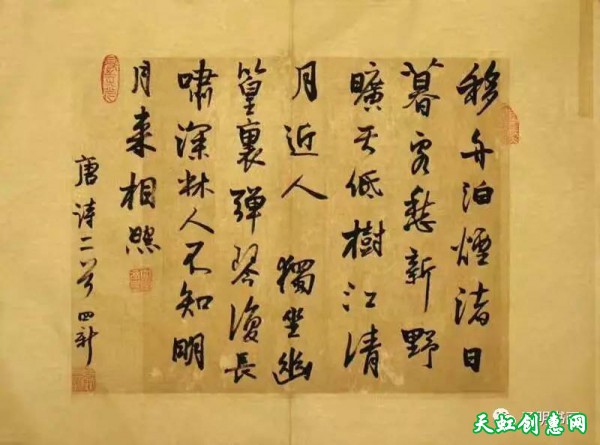 移舟泊煙渚日
暮客愁新野
曠天低樹江清
月近人 獨坐幽
篁裏彈琴復長
嘯深林人不知明
月来相照
唐诗二首 四新
天虹创惠网